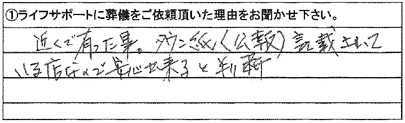 ①ライフサポートに葬儀をご依頼頂いた理由をお聞かせ下さい。
近くで有った事。タウン紙(公報)記載されて
いる店なので安心出来ると判断